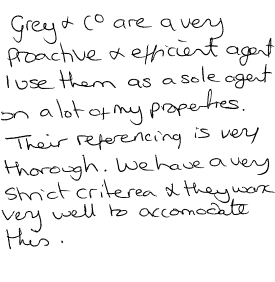 Grey & Co are a very
proactive & efficient agent
I use them as a sole agent
on a lot of my properties.
Their referencing is very
thorough. We have a very
strict criterea & they work
very well to accomodate
this.